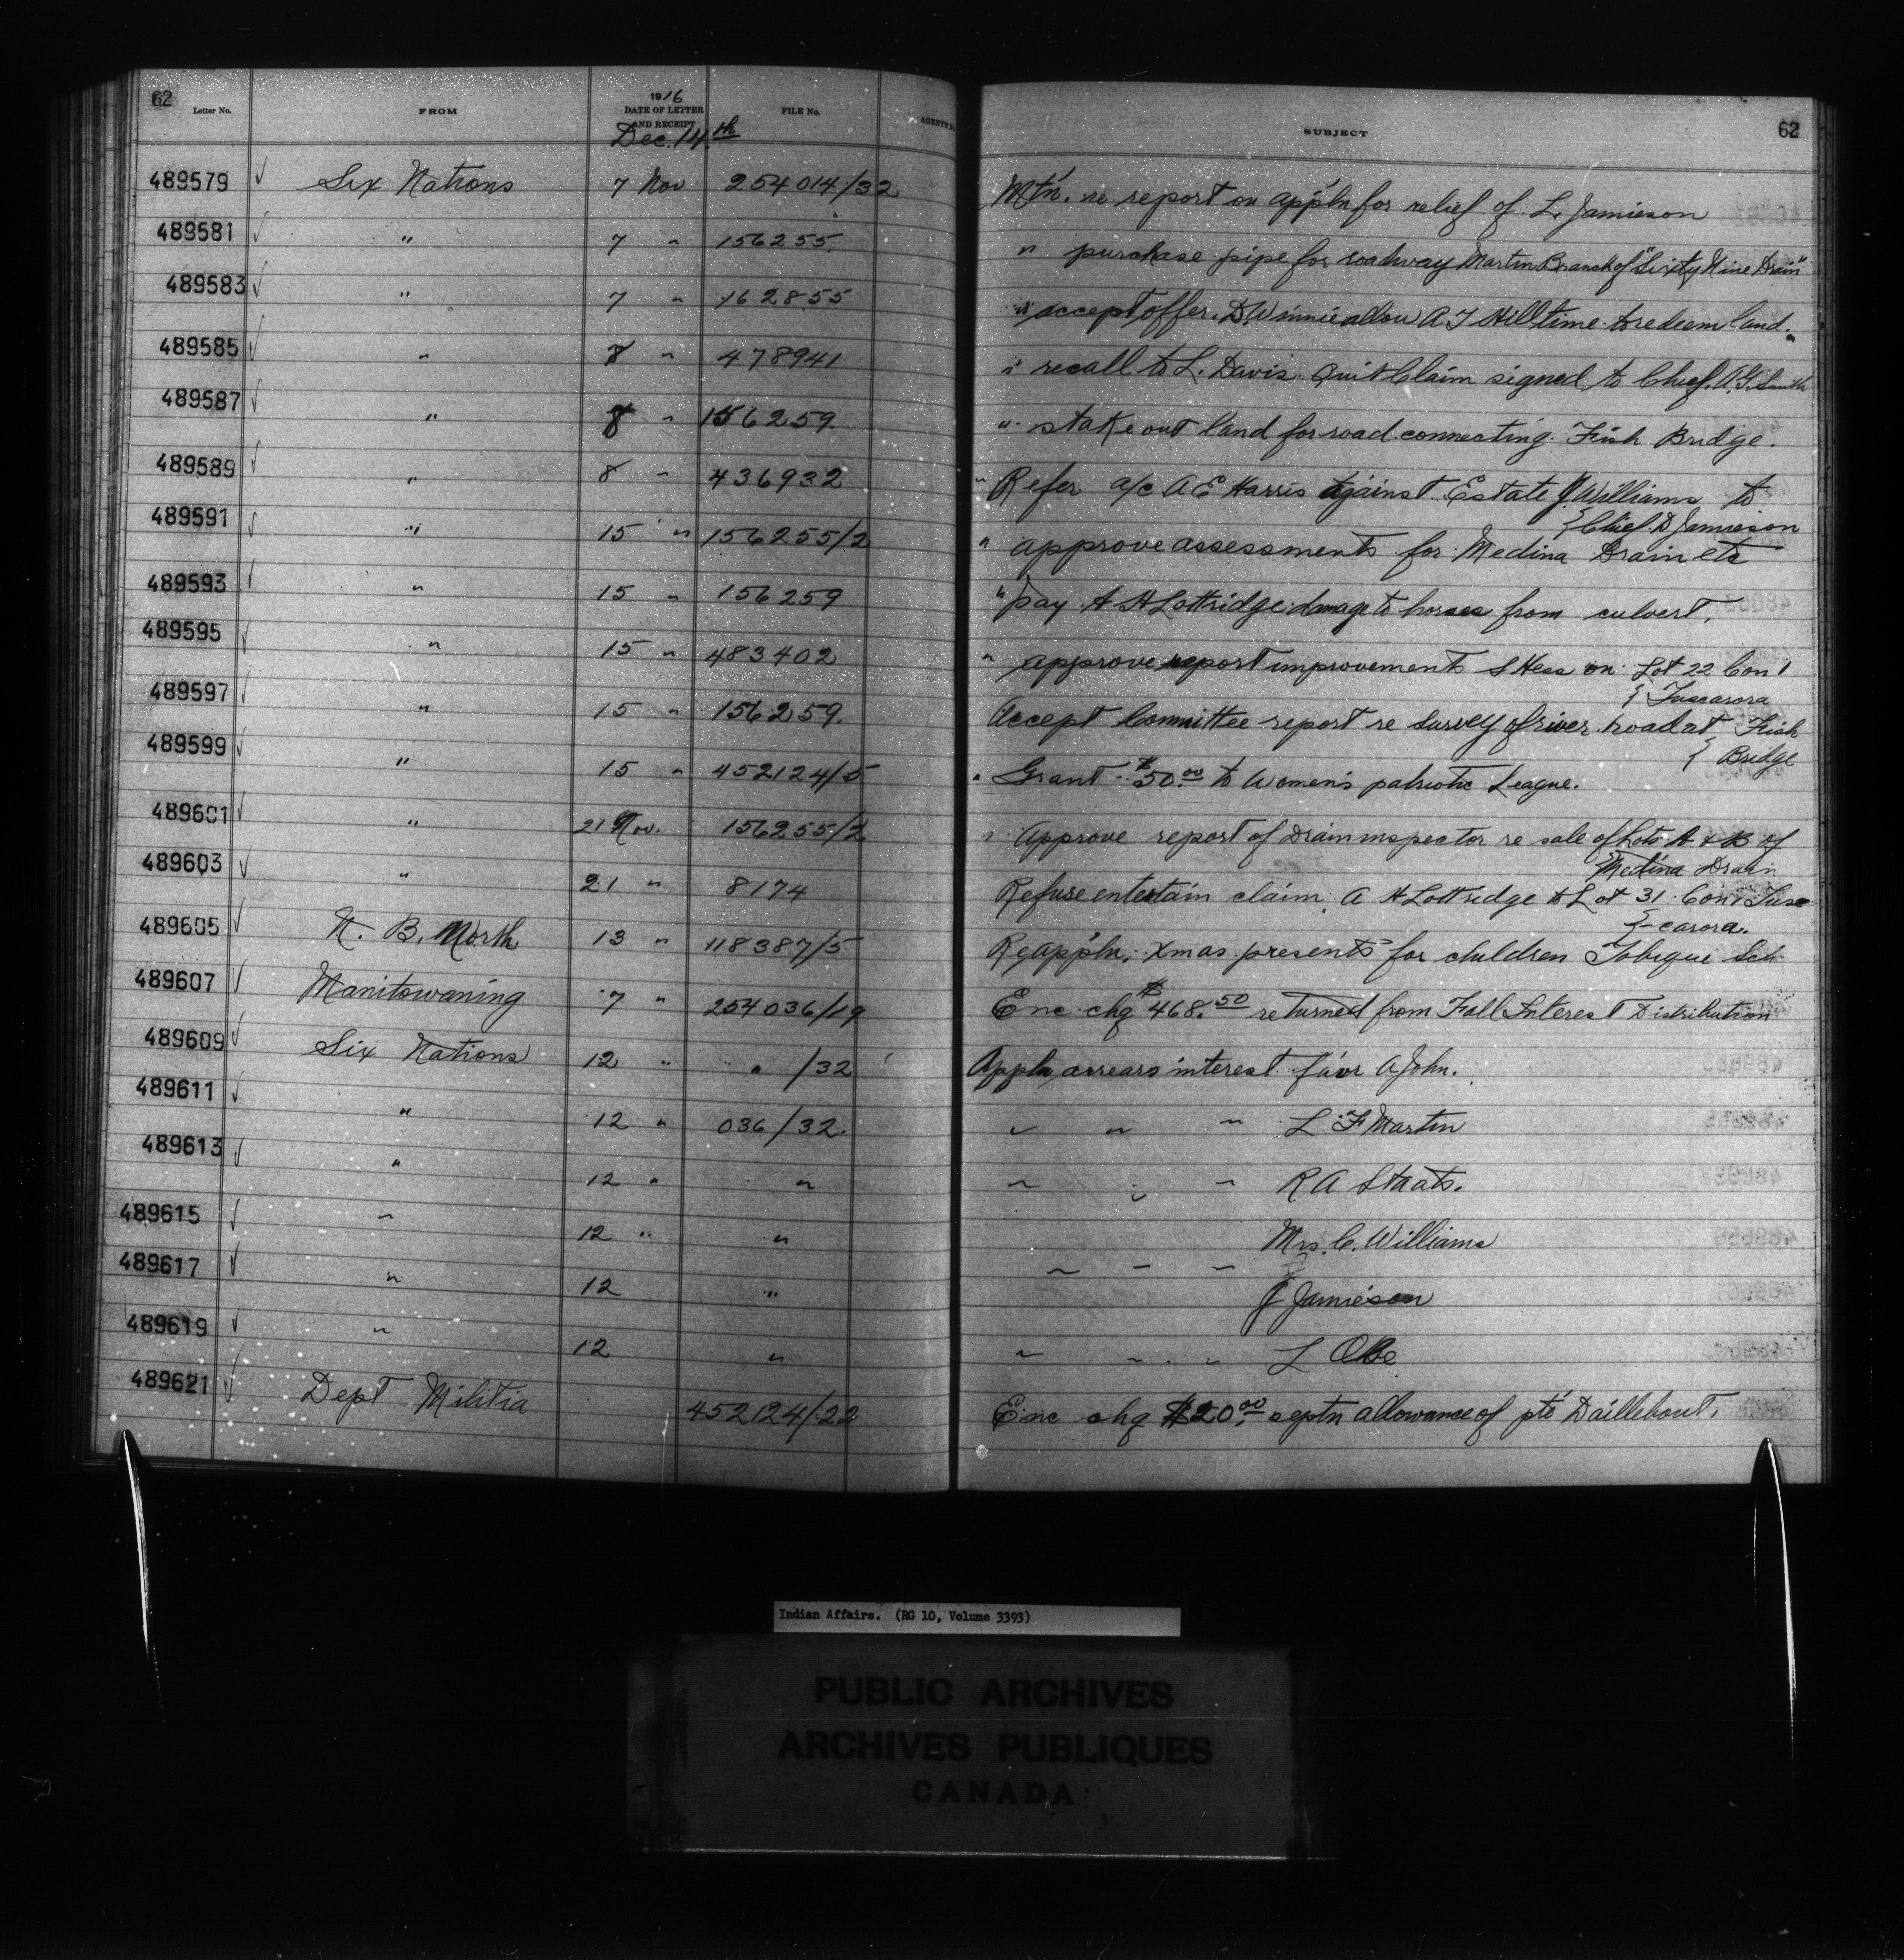 62 Letter No. FROM 1916 DATE OF LETTER AND RECEIPT FILE No. AGENT'S SUBJECT 62
Dec. 14th
489579 ✓ Six Nations 7 Nov 254014/32 Mtn. re report on appln for relief of L. Jamieson
489581 ✓ " 7 " 156255 " purchase pipe for roadway Martin Branch of "Sixty Nine Drain"
489583 ✓ " 7 " 162855 " accept offer. D. Winnie allow A T Hill time to redeem land.
489585 ✓ " 8 " 478941 " recall to L. Davis Quit Claim signed to Chief. A.G. Smith
489587 ✓ " 8 " 156259 " stake out land for road connecting Fish Bridge.
489589 ✓ " 8 " 436932 " Refer a/c A E Harris against Estate J. Williams to
{Chief D Jamieson
489591 ✓ " 15 " 156255/2 " approve assessments for Medina Drain etc
489593 ✓ " 15 " 156259 " pay A H Lottridge damage to horses from culvert.
489595 ✓ " 15 " 483402 " approve report improvements S Hess on Lot 22 Con 1
{ Tuscarora
489597 ✓ " 15 " 156259 Accept Committee report re survey of river road at Fish
{ Bridge
489599 ✓ " 15 " 452124/5 " Grant $50.00 to Women's patriotic League.
489601 ✓ " 21 Nov. 156255/2 " Approve report of Drain inspector re sale of Lots A & B of
{Medina Drain
489603 ✓ " 21 " 8174 Refuse entertain claim A H Lottridge to Lot 31 Con 1 Tus
{-carora.
489605 ✓ N. B. North 13 " 118387/5 Re appln. Xmas presents for children Tobique Sch
489607 ✓ Manitowaning 7 " 254036/19 Enc chq $468.50 returned from Fall Interest Distribution
489609 ✓ Six Nations 12 " " /32 Appln arrears interest favor A John.
489611 ✓ " 12 " 036/32. " " " L F Martin
489613 ✓ " 12 " " " " " R A Staats.
489615 ✓ " 12 " " Mrs. C. Williams
489617 ✓ " 12 " " " " J Jamieson
489619 ✓ " 12 " " " " L Obe
489621 ✓ Dept Militia 452124/22 Enc chq $20.00 septn allowance of pte Daillebout.
Indian Affairs. (RG 10, Volume 3393)
PUBLIC ARCHIVES
ARCHIVES PUBLIQUES
CANADA